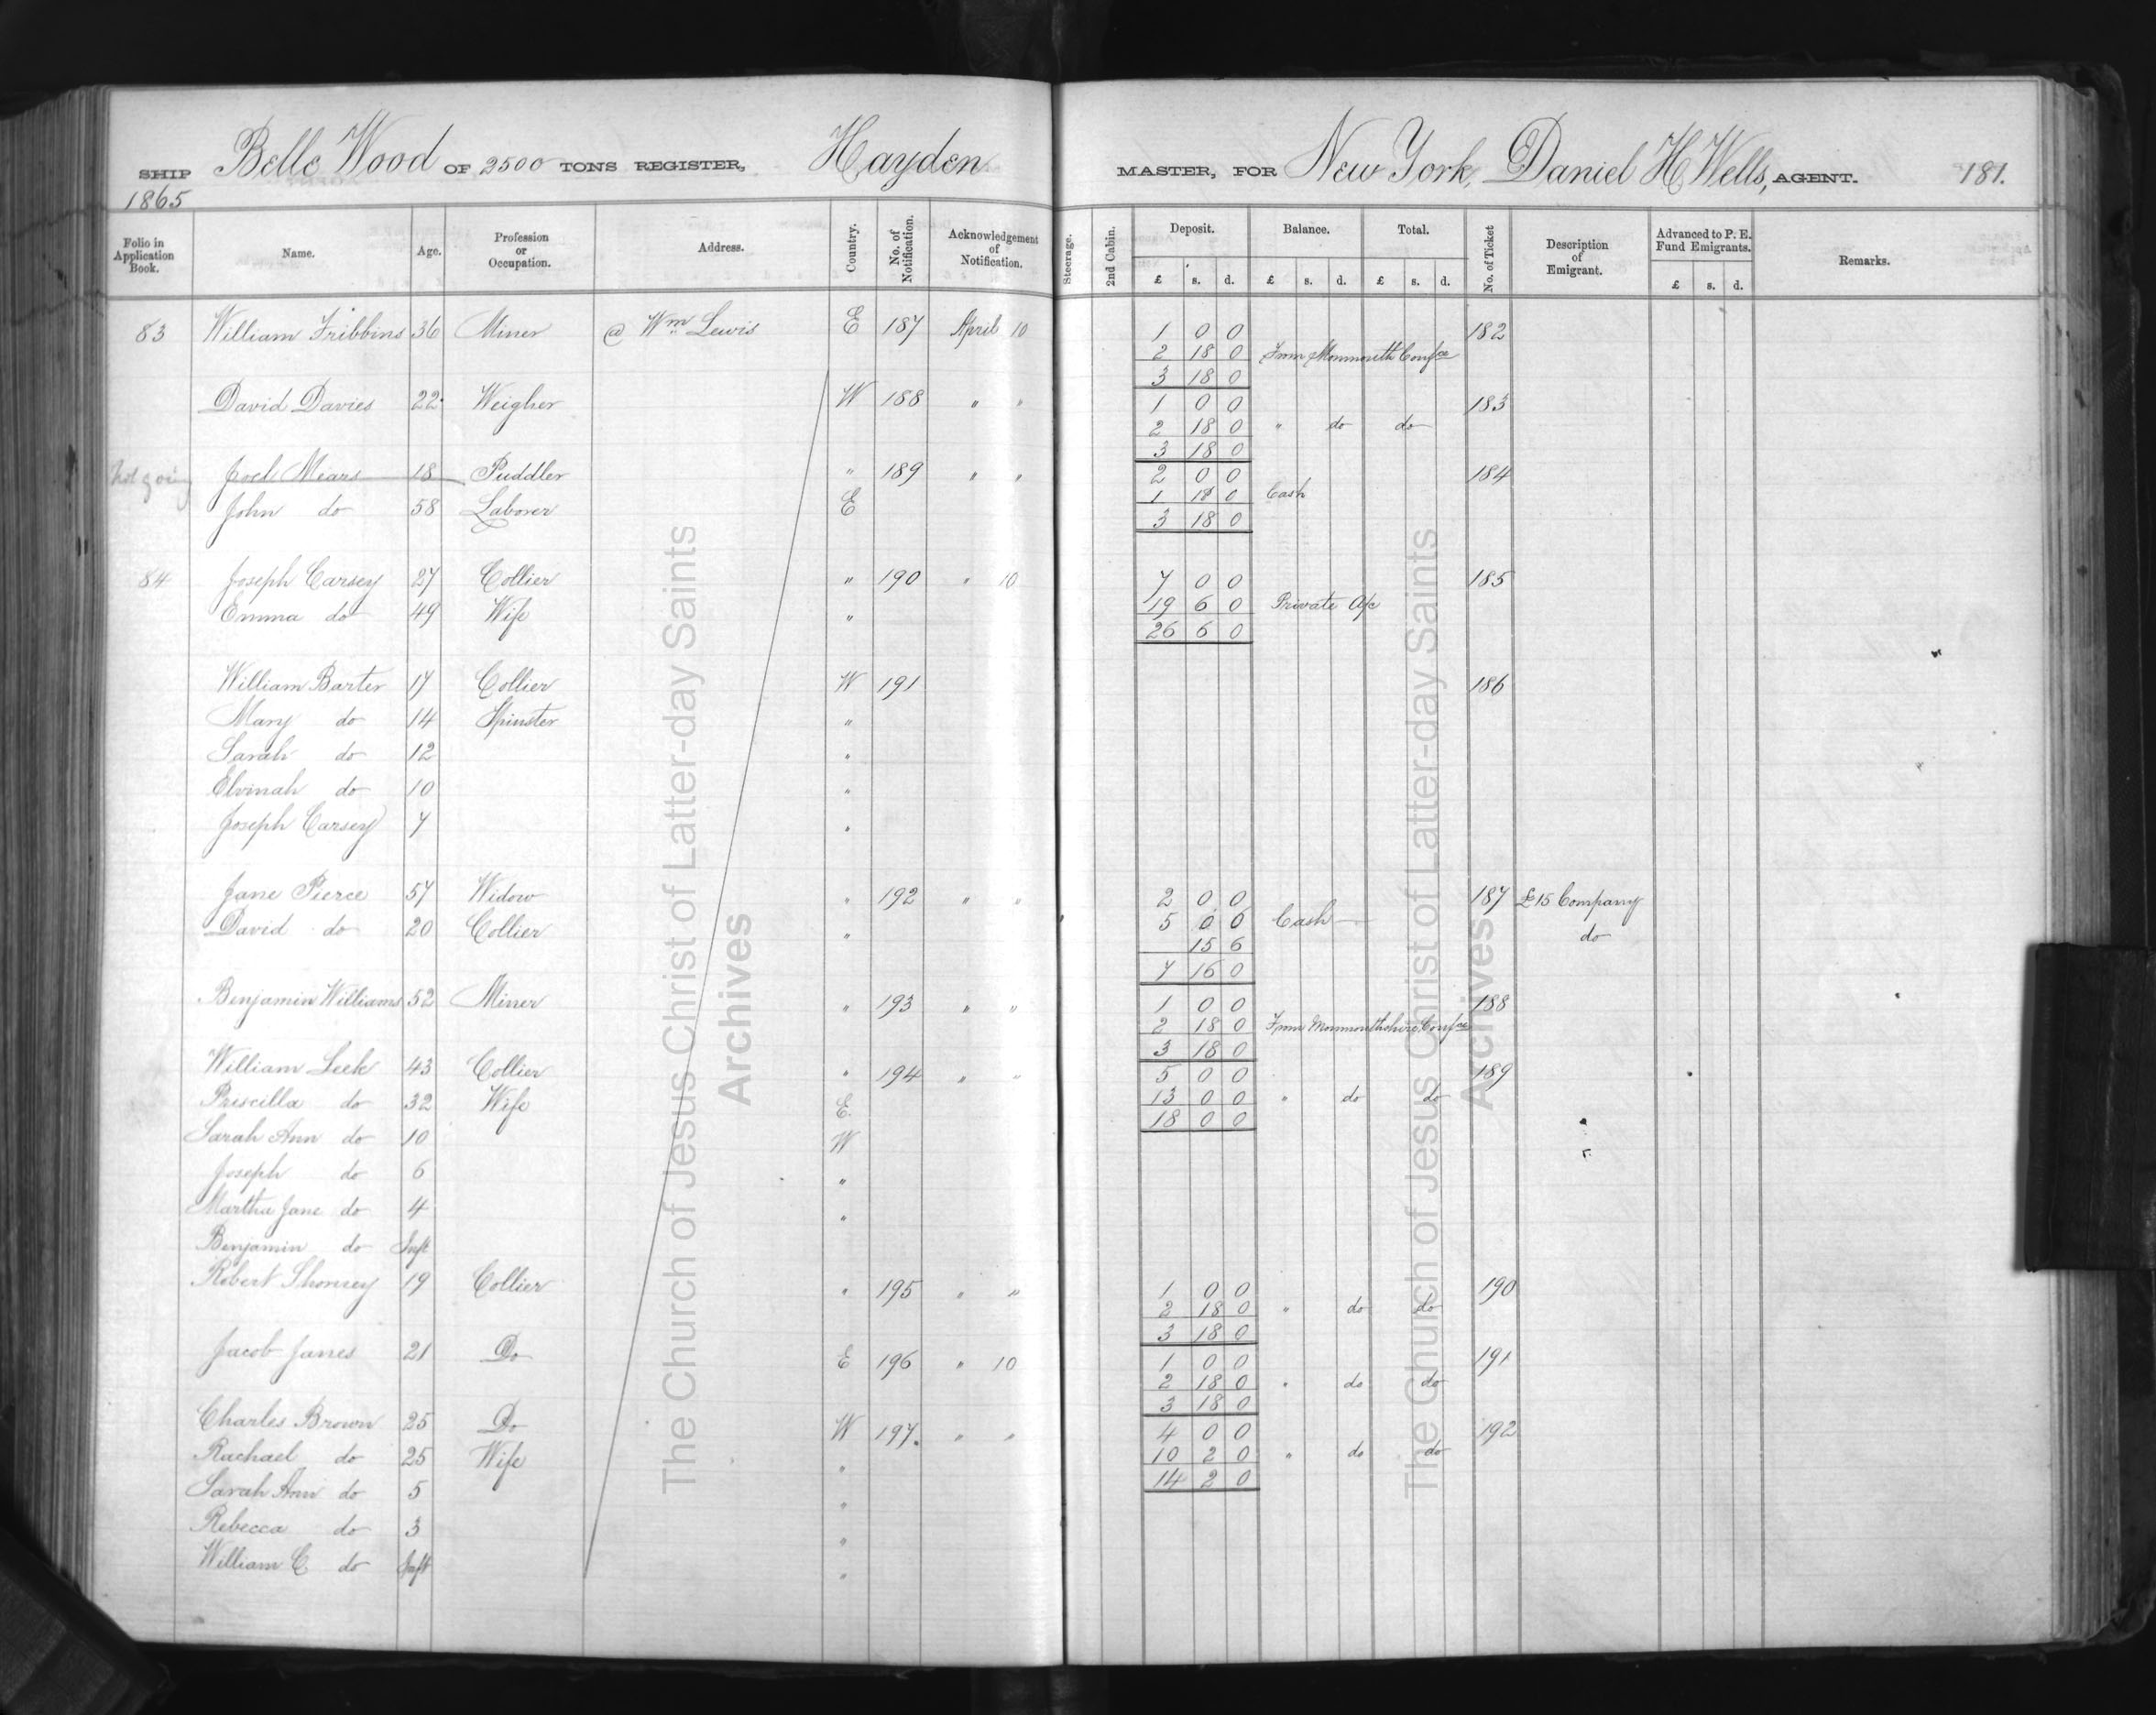 SHIP Belle Wood OF 2500 TONS REGISTER, Hayden MASTER, FOR New York, Daniel H Wells, AGENT. 181.
1865
Folio in Application Book. Name. Age. Profession or Occupation. Address. Country. No. of Notification. Acknowledgement of Notification. Steerage. 2nd Cabin. Deposit. Balance. Total. No. of Ticket Description of Emigrant. Advanced to P. E. Fund Emigrants. Remarks.
£ s. d. £ s. d. £ s. d. £ s. d.
83 William Fribbins 36 Miner @ Wm Lewis E 187 April 10 1 0 0 182
2 18 0 From Monmouth Confce
3 18 0
David Davies 22 Weigher W 188 " " 1 0 0 183
2 18 0 " do do
3 18 0
Not going Joel Mears 18 Puddler " 189 " " 2 0 0 184
1 18 0 Cash
John do 58 Laborer E
3 18 0
84 Joseph Carsey 27 Collier " 190 " 10 7 0 0 185
19 6 0 Private A/c
Emma do 49 Wife "
26 6 0
William Barter 17 Collier W 191 186
Mary do 14 Spinster "
Sarah do 12 "
Elvinah do 10 "
Joseph Carsey 7 "
Jane Pierce 57 Widow " 192 " " 2 0 0 187 £15 Company
5 0 6 Cash
David do 20 Collier " do
15 6
7 16 0
Benjamin Williams 52 Miner " 193 " " 1 0 0 188
2 18 0 From Monmouthshire Confce
3 18 0
William Leek 43 Collier " 194 " " 5 0 0 189
Priscilla do 32 Wife E. 13 0 0 " do do
18 0 0
Sarah Ann do 10 W
Joseph do 6 "
Martha Jane do 4 "
Benjamin do Inft
Robert Thomsey 19 Collier " 195 " " 1 0 0 190
2 18 0 " do do
3 18 0
Jacob Janes 21 Do E 196 " 10 1 0 0 191
2 18 0 " do do
3 18 0
Charles Brown 25 Do W 197. " " 4 0 0 192
Rachael do 25 Wife " 10 2 0 " do do
14 2 0
Sarah Ann do 5 "
Rebecca do 3 "
William C do Inft "
The Church of Jesus Christ of Latter-day Saints
Archives
The Church of Jesus Christ of Latter-day Saints
Archives